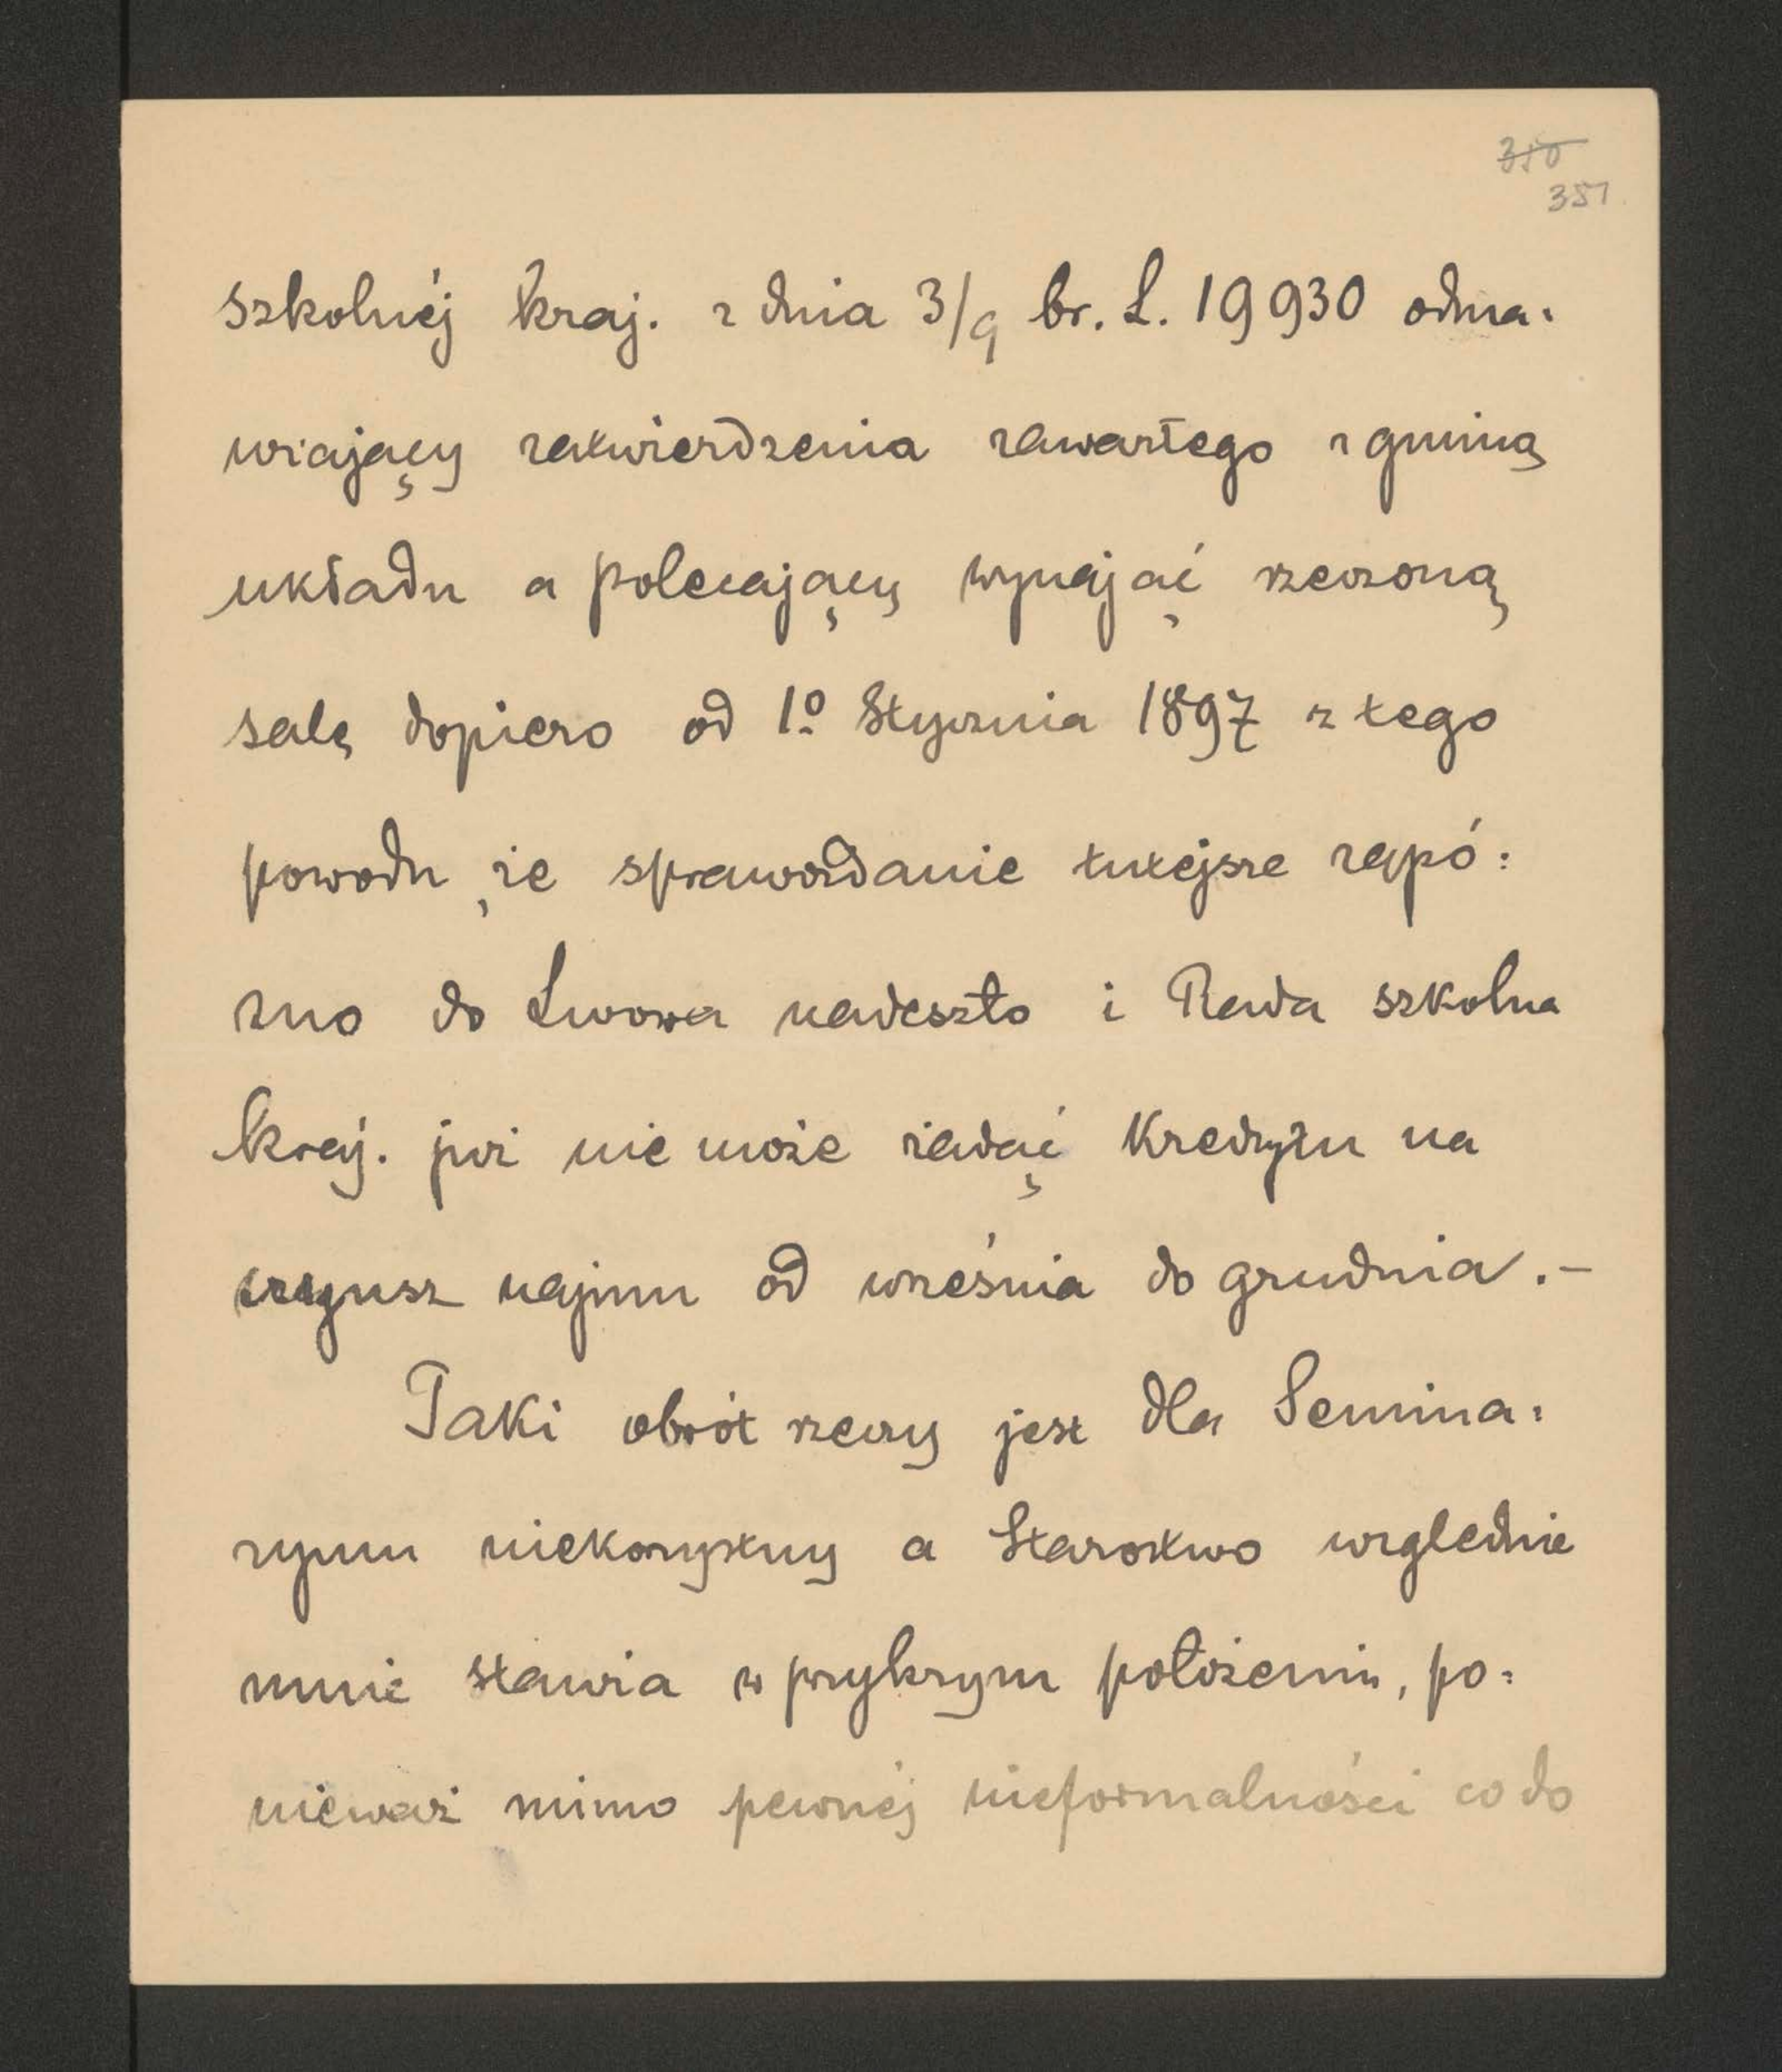 350
351
szkolnéj kraj. z dnia 3/9 br. L. 19930 odma:
wiający zatwierdzenia zawartego z gminą
układu a polecający wynająć rzeczoną
salę dopiero od 1º Stycznia 1897 z tego
powodu, że sprawozdanie tutejsze zapó:
zno do Lwowa nadeszło i Rada szkolna
kraj. już nie może żądać kredytu na
czynsz najmu od września do grudnia.–
Taki obrót rzeczy jest dla Semina:
ryum niekorzystny a Starostwo względnie
mnie stawia w przykrym położeniu, po:
nieważ mimo pewnéj nieformalności co do